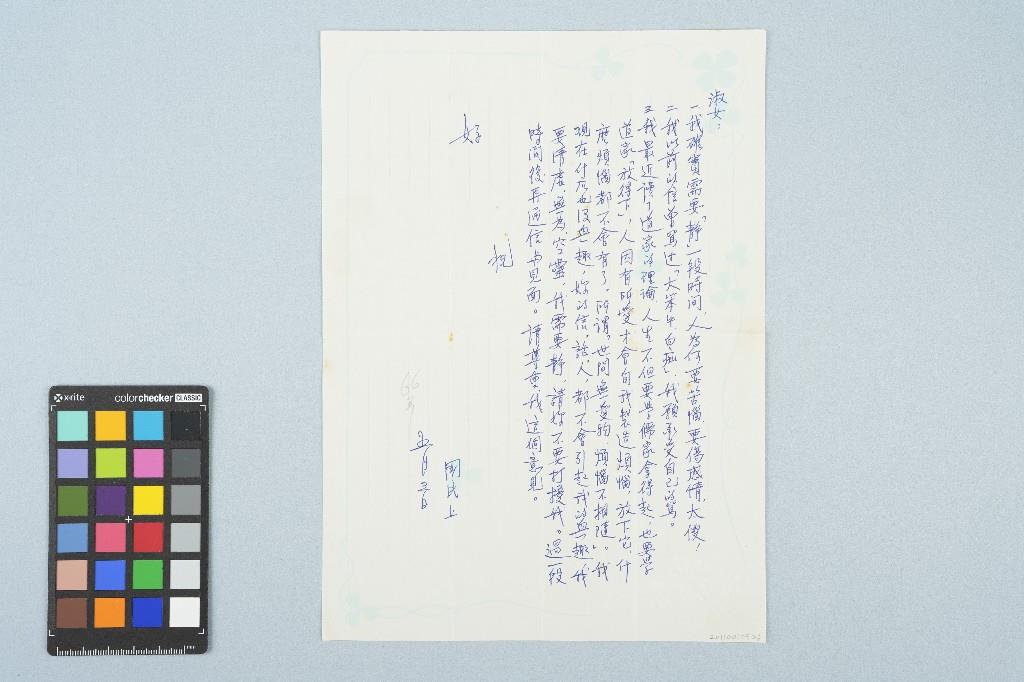 淑女：
一我確實需要「靜」一段時間，人為何要苦惱，要傷感情，大傻，
二我以前的信曾罵过「大笨牛，白痴」，我願承受自己的罵。
三我最近讀了道家的理論 人生不但要學儒家拿得起，也要學
道家「放得下」，人因有所愛才會自我製造煩惱，放下它，什
麼煩惱都不會有了。所謂「世間無愛物，煩惱不相隨」。我
現在什麼也沒興趣，妳的信，話，人，都不會引起我的興趣，我
要清虛，無為，空靈，我需要靜，請妳不要打擾我。過一段
時间後再通信与見面。請尊重我这個意見。
祝
好
國民上
五月三日
66年
x-rite
colorchecker CLASSIC